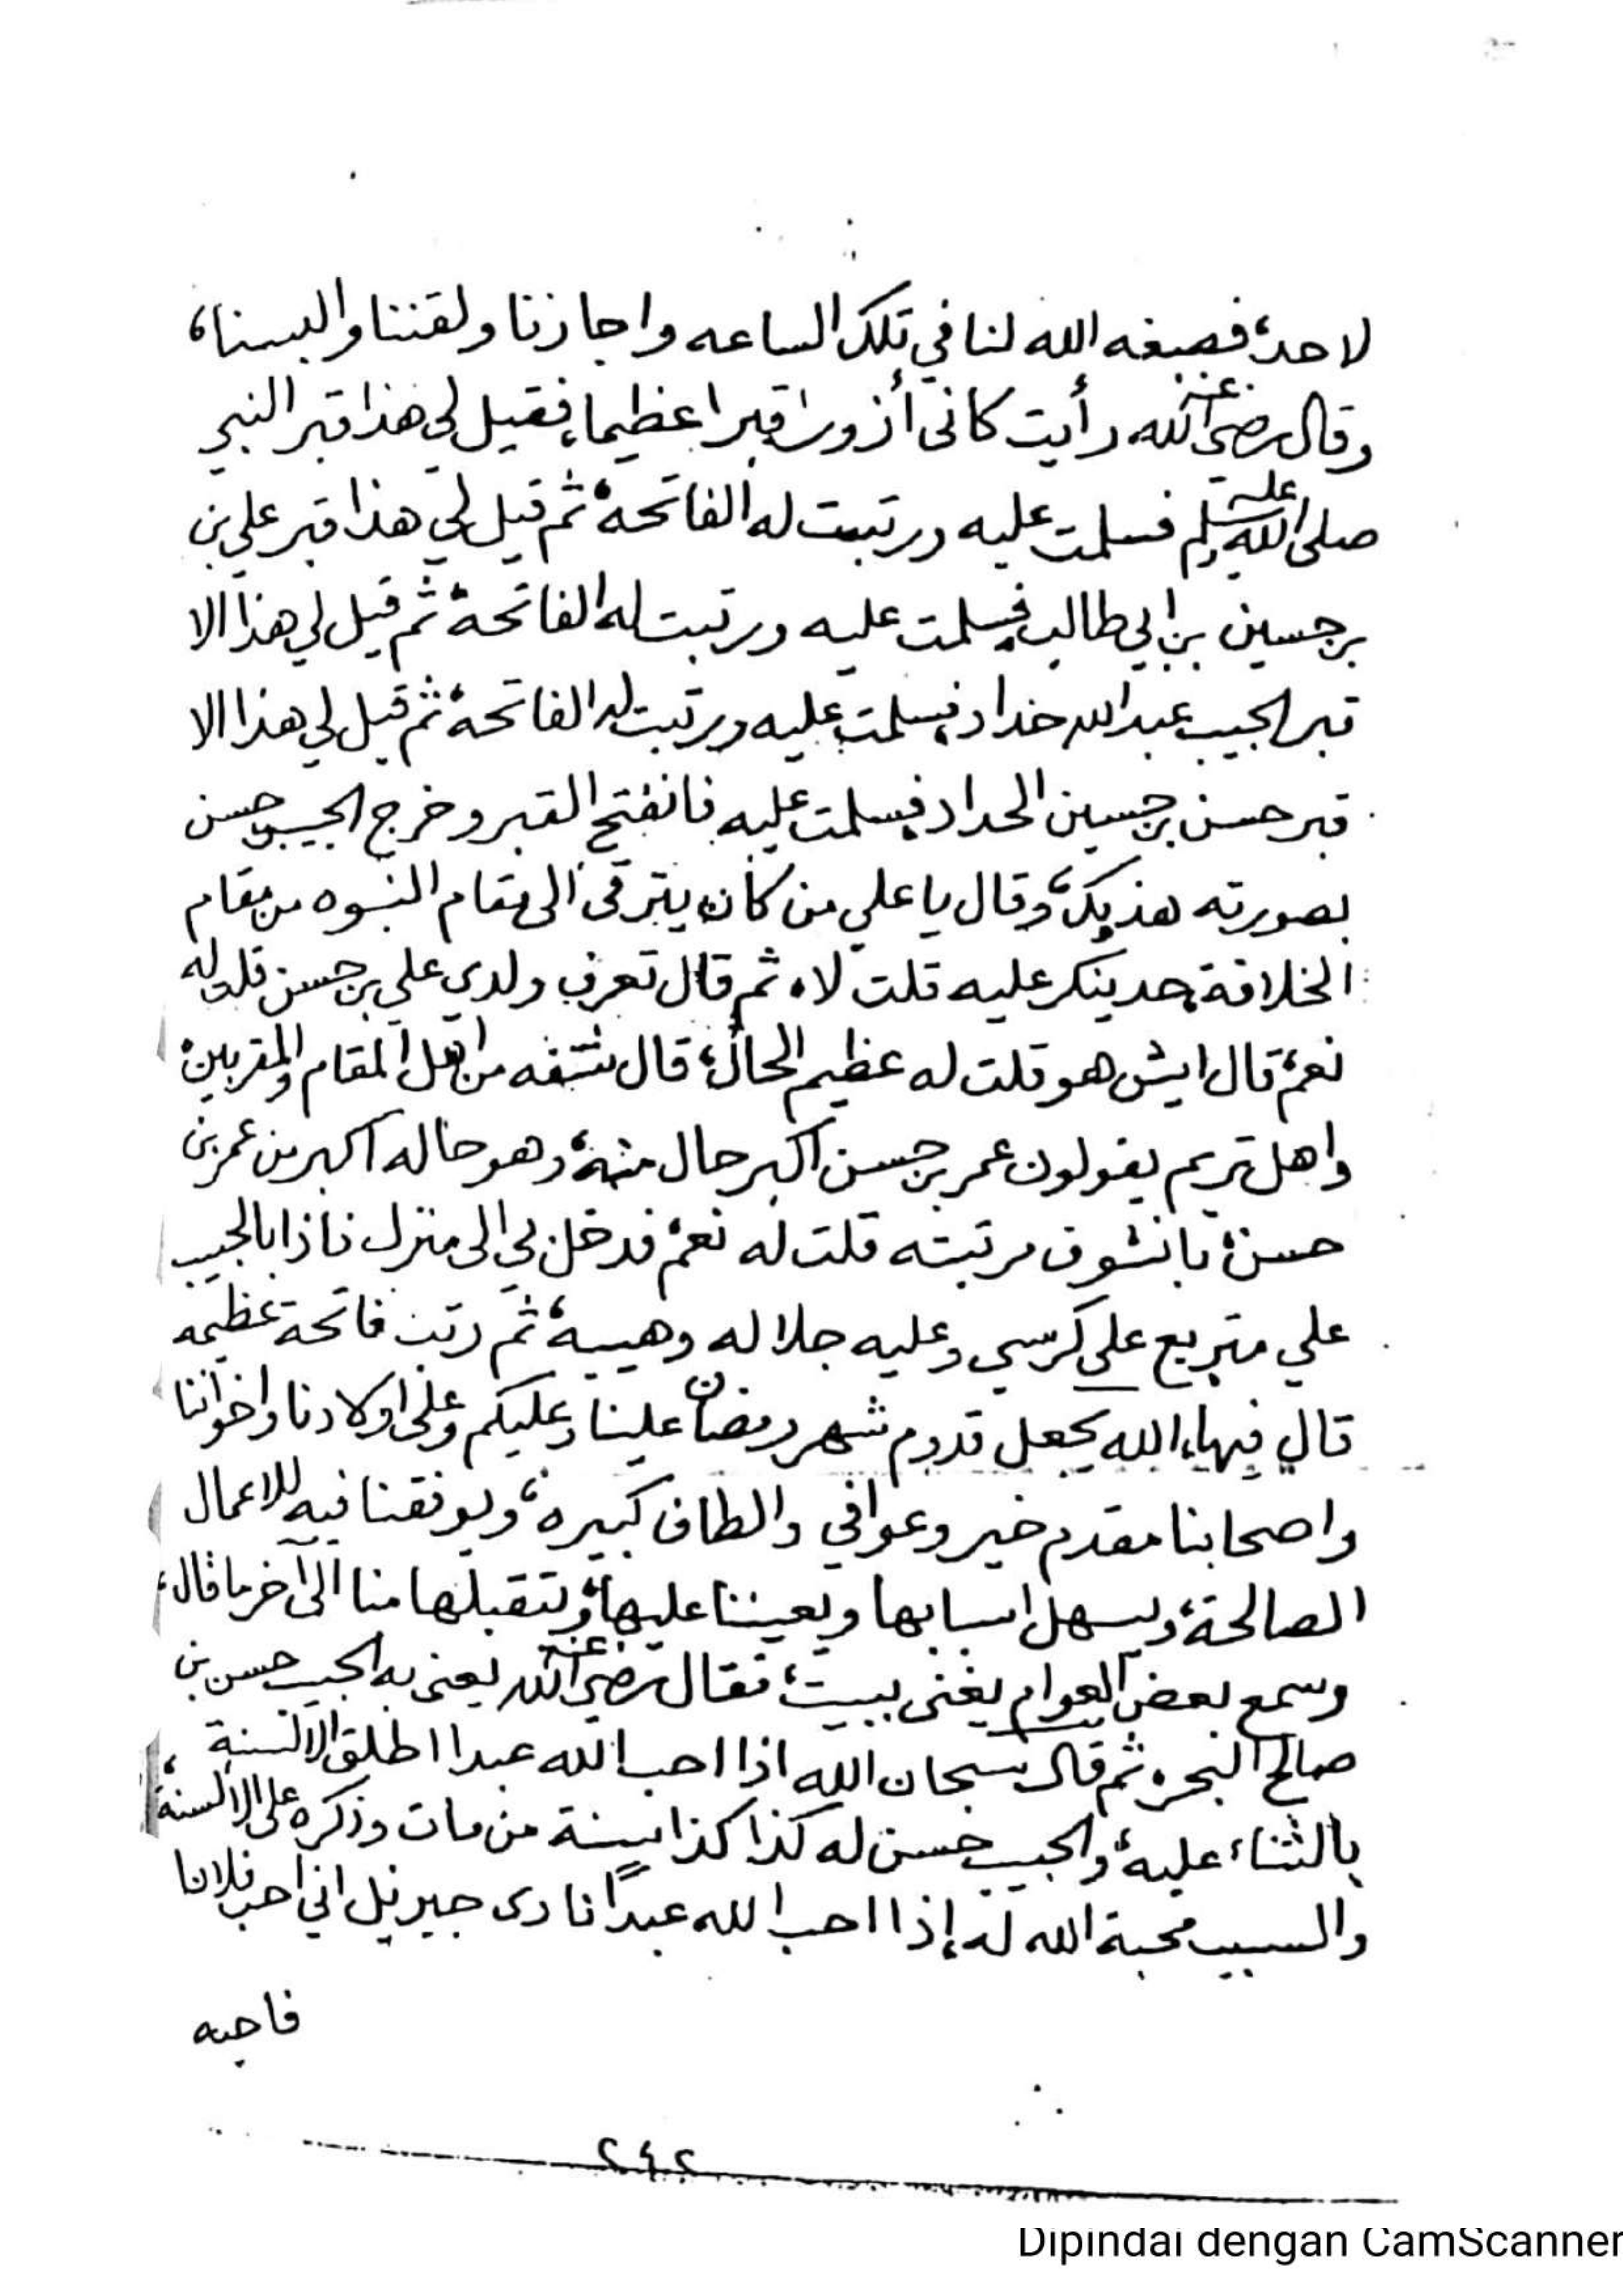 لاحد، فصبغه الله لنا في تلك الساعه واجازنا ولقننا والبسنا،
وقال رضي الله عنه رأيت كاني أزور قبرا عظيما، فقيل لي هذا قبر النبي
صلى الله عليه وسلم فسلمت عليه ورتبت له الفاتحة، ثم قيل لي هذا قبر علي بن
بن حسين بن ابي طالب فسلمت عليه ورتبت له الفاتحة، ثم قيل لي هذا الا
قبر الحبيب عبدالله حداد، فسلمت عليه ورتبت له الفاتحة، ثم قيل لي هذا الا
قبر حسن بن حسين الحداد فسلمت عليه فانفتح القبر وخرج الحبيب حسن
بصورته هذيك، وقال يا علي من كان يترقى الى مقام النبوه من مقام
الخلافة، حد ينكر عليه قلت لا، ثم قال تعرف ولدي علي بن حسن قلت له
نعم، قال ايش هو قلت له عظيم الحال، قال شفه من اهل المقام والمقربين
واهل تريم يقولون عمر بن حسن اكبر حال منه، وهو حاله اكبر من عمر بن
حسن، بانشوف مرتبته قلت له نعم، فدخل بي الى منزل فاذا بالحبيب
علي متربع على كرسي وعليه جلاله وهيبة، ثم رتب فاتحة عظيمه
قال فيها، الله يجعل قدوم شهر رمضان علينا وعليكم وعلى اولادنا واخواننا
واصحابنا مقدم خير وعوافي والطاف كبيره، ويوفقنا فيه للاعمال
الصالحة، ويسهل اسبابها ويعيننا عليها، ويتقبلها منا الى آخر ما قال،
وسمع بعض العوام يغنى ببيت، فقال رضي الله عنه يعنى به الحبيب حسن بن
صالح البحر، ثم قال سبحان الله اذا احب الله عبدا اطلق الالسنة
بالثناء عليه، والحبيب حسن له كذا كذا سنة من مات وذكره على الالسنة،
والسبب محبة الله له، إذا احب الله عبدًا نادى جبريل اني احب فلانا
فاحبه
٢٤٢
Dipindai dengan CamScanner